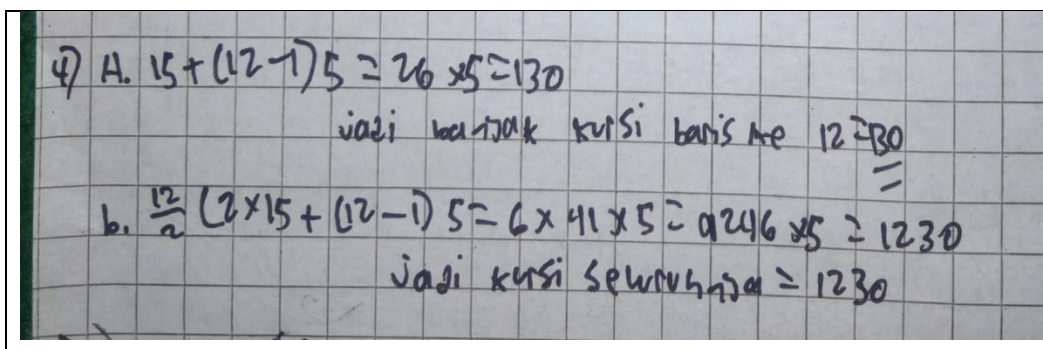 4) A. 15 + (12-1) 5 = 26 x5 = 130
jadi banyak kursi baris ke 12 = 130
b. 12/2 (2×15 + (12-1) 5 = 6 x 41 x 5 = 246 x5 = 1230
jadi kursi seluruhnya = 1230